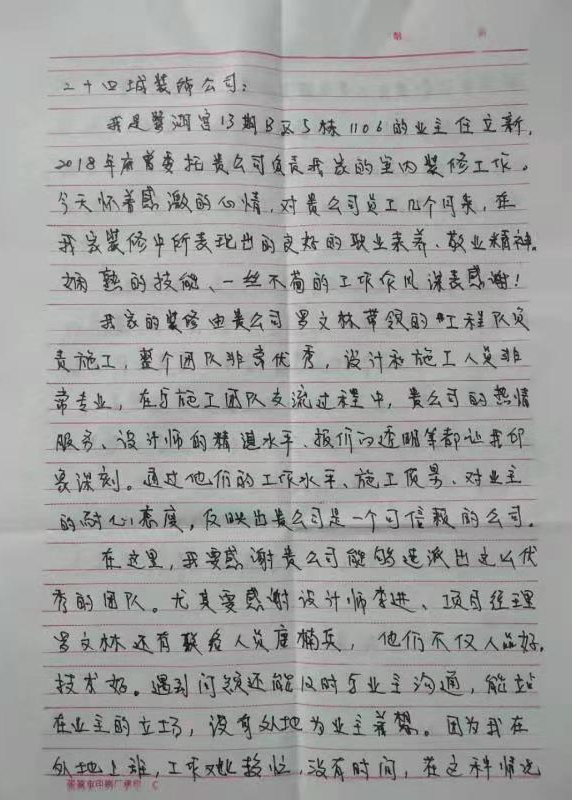 二十四城装饰公司:
我是翡翠宫13期B区5栋1106的业主任立新,
2018年底曾委托贵公司负责我家的室内装修工作。
今天怀着感激的心情,对贵公司员工几个月来,在
我家装修中所表现出的良好的职业素养、敬业精神、
娴熟的技能、一丝不苟的工作作风深表感谢!
我家的装修由贵公司罗文林带领的工程队负
责施工,整个团队非常优秀,设计和施工人员非
常专业,在与施工团队交流过程中,贵公司的热情
服务、设计师的精湛水平、报价的透明等都让我印
象深刻。通过他们的工作水平、施工质量、对业主
的耐心态度,反映出贵公司是一个可信赖的公司。
在这里,我要感谢贵公司能够选派出这么优
秀的团队。尤其要感谢设计师李进、项目经理
罗文林还有联络人员唐楠兵,他们不仅人品好,
技术好。遇到问题还能及时与业主沟通,能站
在业主的立场,设身处地为业主着想。因为我在
外地上班,工作又比较忙,没有时间,在这种情况